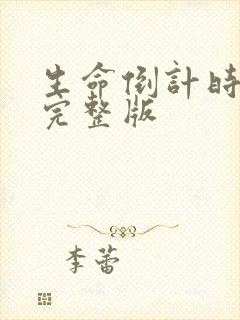 生命倒計時
完整版
李蕾